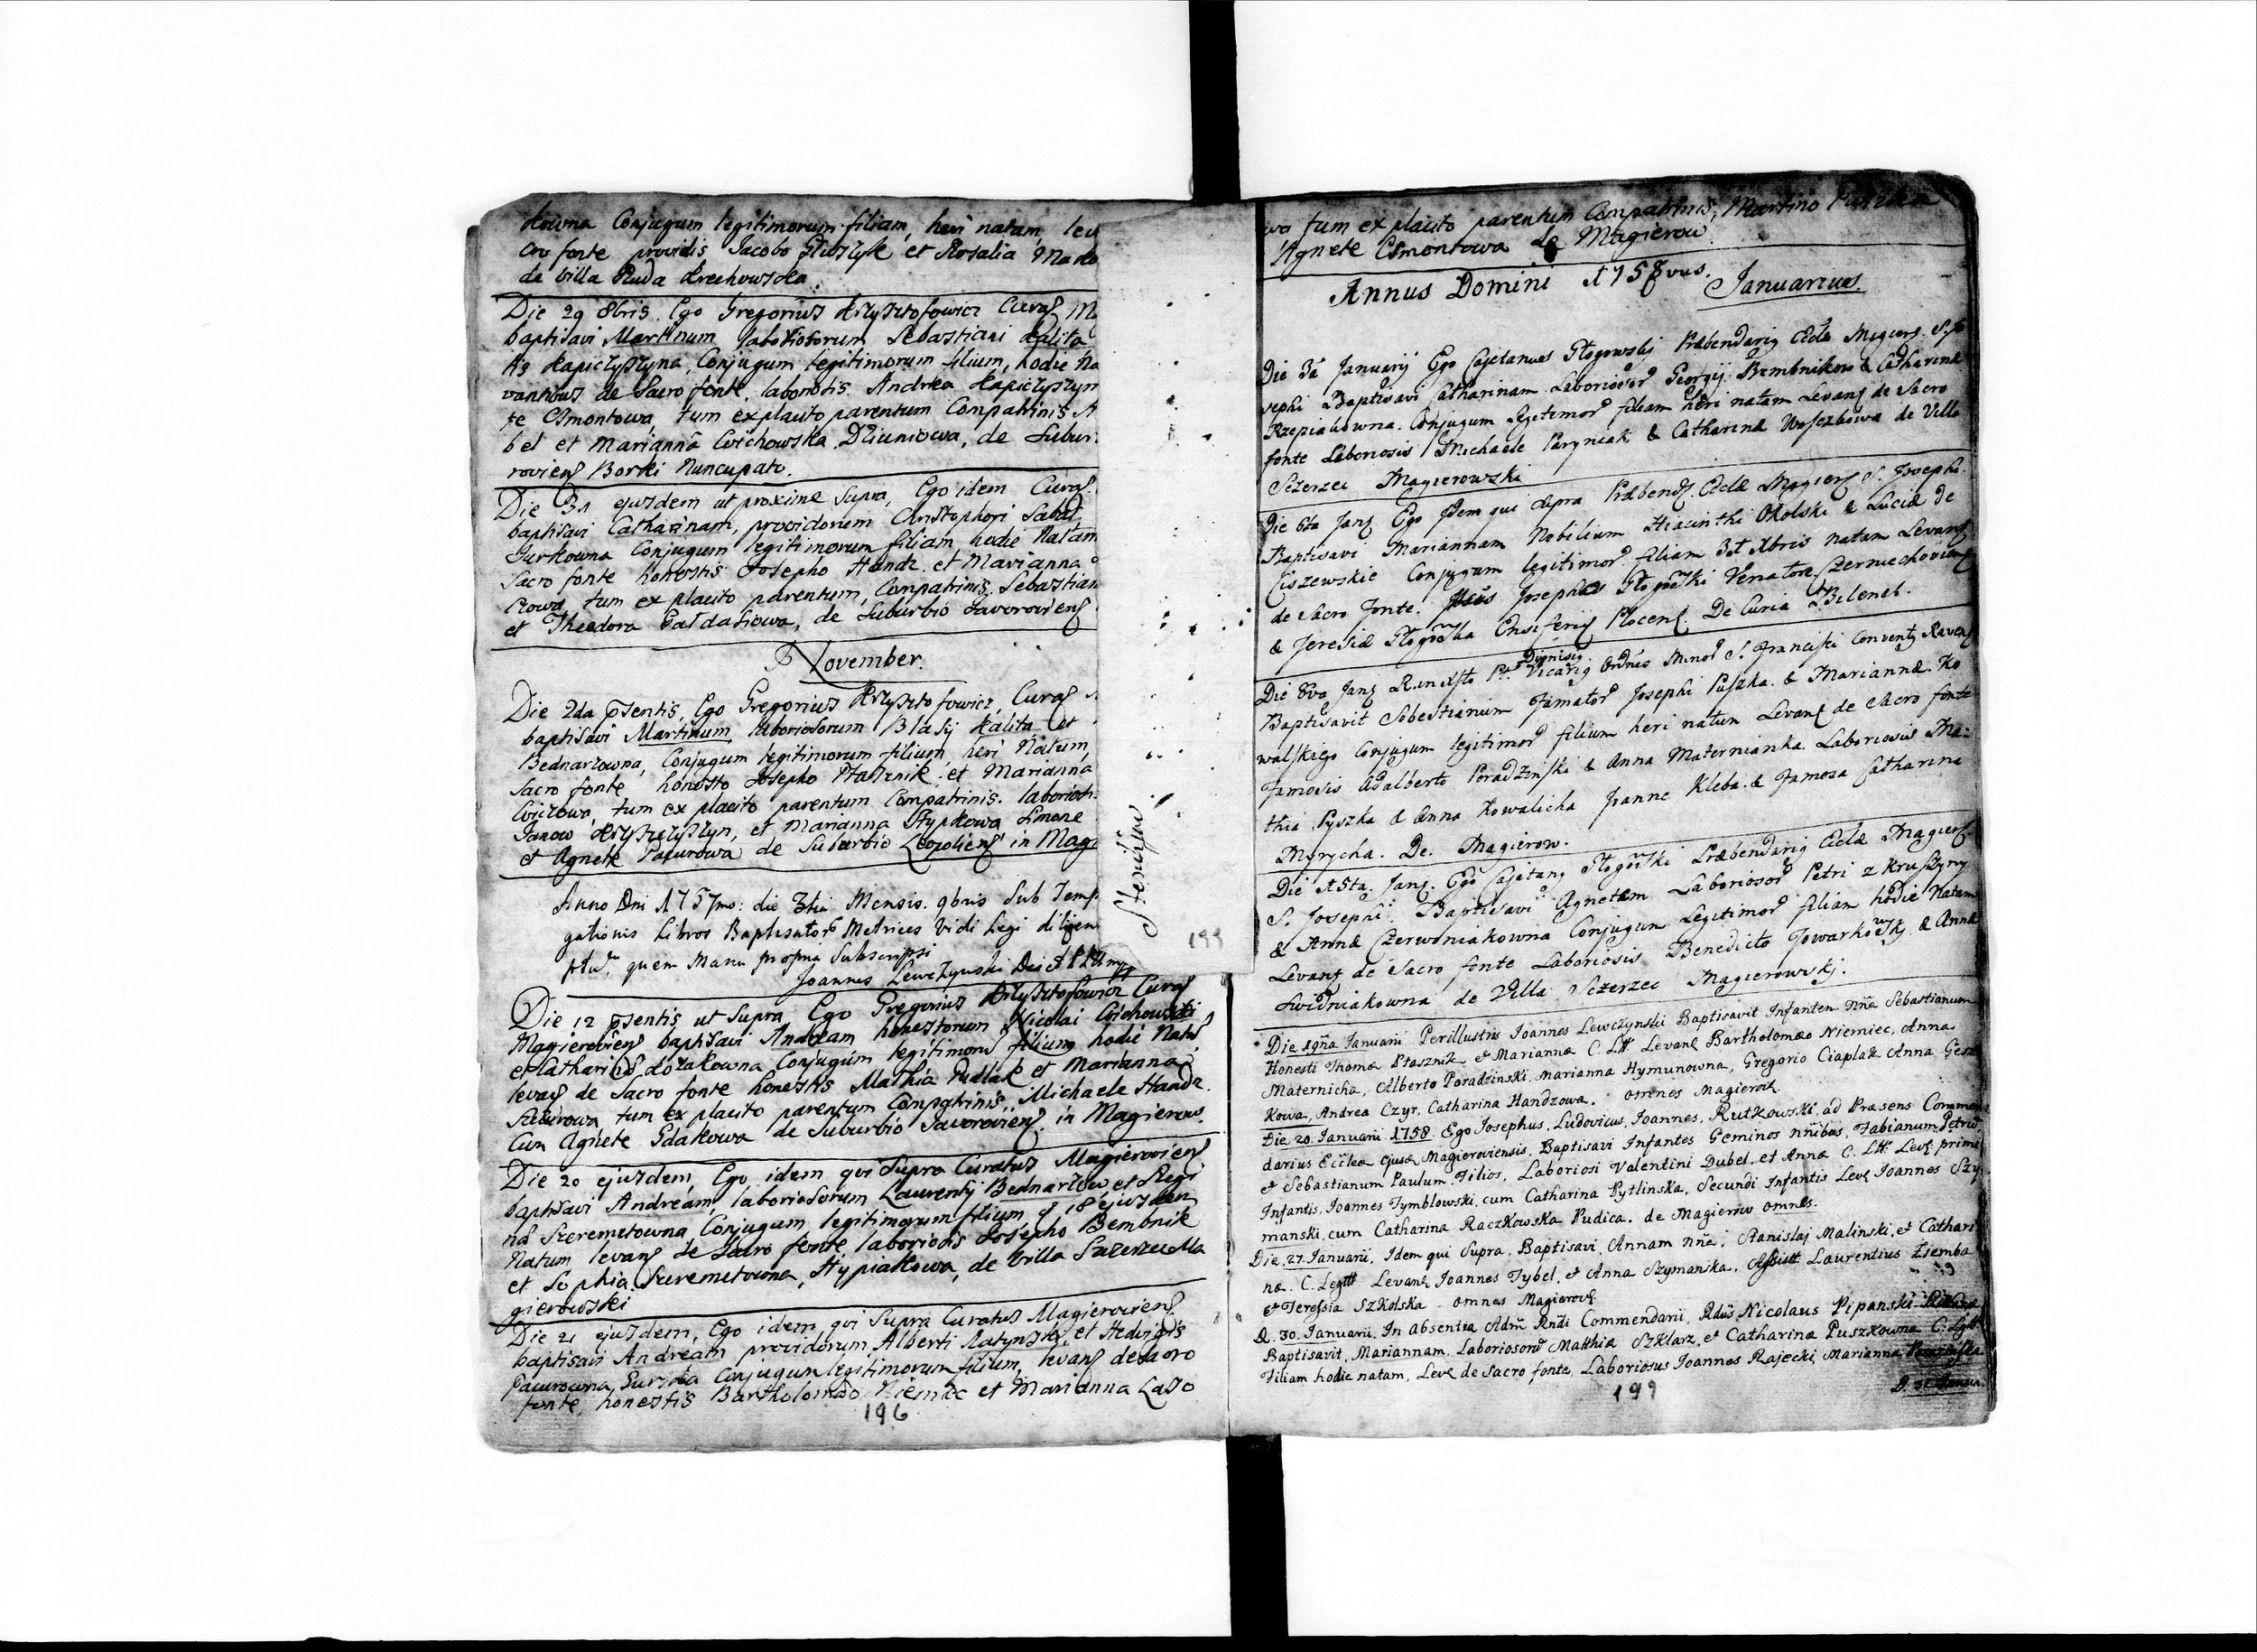 kowna Conjugum legitimorum filiam, heri natam, lev
cro fonte providis Jacobo et Rosalia
de Villa Ruda Krechowska.
Die 29 8bris. Ego Gregorius Krzysztofowicz Curat9 M
baptisavi Martinum laboriosorum Sebastiani Kalita
Conjugum legitimorum filium, hodie na
vantibus de Sacro fonte, laboriosis Andrea
te Esmontowa, tum ex placito parentum Compatrinis A
bel et Marianna Cvichowska Dziuniowa, de Subur
roviens Borki Nuncupato.
Die 31 ejusdem ut proxime Supra, Ego idem Curat9
baptisavi Catharinam, providorum Christophori
Jurkowna Conjugum legitimorum filiam hodie Natam
Sacro fonte honestis Josepho Handz et Marianna
tum ex placito parentum, Compatrinis, Sebastian
et Theodora de Suburbio Javoroviens
November.
Die 2da psentis, Ego Gregorius Krzysztofowicz, Curat9
baptisavi Martinum laboriosorum Blasij Kalita et
Bednarzowna, Conjugum legitimorum filium, heri Natum,
Sacro fonte honesto Josepho Ptasznik et Marianna
tum ex placito parentum Compatrinis. laboriosis
Janow Krzyszczyszyn, et Marianna Stypkowa Simone
et Agnete Pacurowa de Suburbio Leopoliens in Mag
Anno Dni 1757mo: die 3tia Mensis 9bris Sub Temp
gationis Libros Baptisator Metrices Vidi Legi diligen
quem Manu propria Subscripsi
Joannes Lewczynski
Die 12 psentis ut Supra Ego Gregorius Krzysztofowicz Curat9
Magieroviens baptisavi Andream honestorum Nicolai Cvichowski
et Catharinæ Kozakowna Conjugum legitimorum filium hodie Natum
levans de Sacro fonte honestis Mathia Pudlak et Marianna
tum ex placito parentum Compatrinis, Michaele Handz
Cum Agnete Gdakowa de Suburbio Javoroviens in Magierow.
Die 20 ejusdem, Ego idem qui Supra Curatus Magieroviens
baptisavi Andream, laboriosorum Laurentij Bednarzow et Regi
na Szeremetowna Conjugum legitimorum filium 18 ejusdem
Natum levans de Sacro fonte laboriosis Josepho Bembnik
et Sophia Szeremetowna, Hypiakowa, de Villa Szczerzec Ma
gierowski
Die 21 ejusdem, Ego idem qui Supra Curatus Magieroviens
baptisavi Andream providorum Alberti Ratynski et Hedvigis
Pacurowna, Conjugum legitimorum filium, levans de Sacro
fonte, honestis Bartholomæo Niemiec et Marianna Lazo
196
199
wa tum ex placito parentum Compatrinis, Martino
Agnete Esmontowa de Magierow
Annus Domini 1758vus. Januarius.
Die 3a Januarij Ego Cajetanus Głogowskj Præbendari9 Eclæ Magiers. S. Jo
sephi Baptisavi Catharinam Laborioso Georgij Bembnikow & Catharinæ
Rzepiakowna. Conjugum Legitimor filiam heri natam Levans de Sacro
fonte Laboriosis Michaele Paryniak & Catharina de Villa
Sczerzec Magierowski
Die 6ta Jan9 Ego Idem qui supra Præbend9 Eclæ Magiers S. Josephi.
Baptisavi Mariannam Nobilium Hiacinthi Okolski & Lucia de
Ciszewskie Conjugum legitimor filiam 31 Xbris natam Levans
de Sacro fonte. Josephus Venatore Czerniechoviens
& Teresia Ensiferi9 Plocens. De Curia Bilench.
Die 8va Jan9 R. in Xsto Pr. Dionisi9 Vicari9 Ordnis Minor S. Francisci Convent9 Ravens
Baptisavit Sebastianum Famator Josephi Puszka & Mariannæ Ko
walskiego Conjugum legitimor filium heri natum Levans de Sacro fonte
Famosis Adalberto Poradzinski & Anna Maternianka Laboriosis Ma-
thia Pyszka & Anna Kowalicha Joanne Kleba & Famosa Catharina
Myrycha. De. Magierow.
Die 15ta. Jan9. Ego Cajetan9 Præbendari9 Eclæ Magiers
S. Josephi. Baptisavi Agnetem Laboriosor Petri z Kruszyny
& Annæ Czerwoniakowna Conjugum Legitimor filiam hodie Natam
Levans de Sacro fonte Laboriosis Benedicto & Anna
Swidniakowna de Villa Sczerzec Magierowskj.
Die 19na Januarii Perillustris Ioannes Lewczynski Baptisavit Infantem Nña Sebastianum
Honesti Thomæ Ptasznik et Mariannæ C. Ltt Levans Bartholomæo Niemiec, Anna
Maternicha, Alberto Poradzinski, Marianna Hymunowna, Gregorio Ciaplak Anna
kowa, Andrea Czyr, Catharina Handzowa. omnes Magierow
Die 20. Januarii. 1758. Ego Josephus, Ludovicus, Joannes, Rutkowski, ad Præsens Commen
darius Ecclæ ejusd Magieroviensis, Baptisavi Infantes Geminos nñibus, Fabianum Petrum
et Sebastianum Paulum. Filios, Laboriosi Valentini Dubel, et Annæ C. Ltt. Leve primi
Infantis, Joannes Tymblowski, cum Catharina Pytlinska, Secundi Infantis Leve Ioannes Szy
manski, cum Catharina Raczkowska Pudica. de Magierow omnes.
Die. 27. Januarii, Idem qui Supra, Baptisavi, Annam nñe, Stanislaj Malinski, et Cathari
næ. C. Legtt Levans Joannes Tybel, et Anna Szymanska, Assistt Laurentius Ziemba
et Teressia Szkolska omnes Magierovs.
D. 30. Januarii, In Absentia Adm Rndi Commendarii, Rdus Nicolaus Pipanski
Baptisavit, Mariannam, Laboriosoru Matthia Szklarz, et Catharina Puszkowna C. Lgtt
Filiam hodie natam, Leve de Sacro fonte, Laboriosus Joannes Rajecki, Marianna
D. 31 Januar.
199